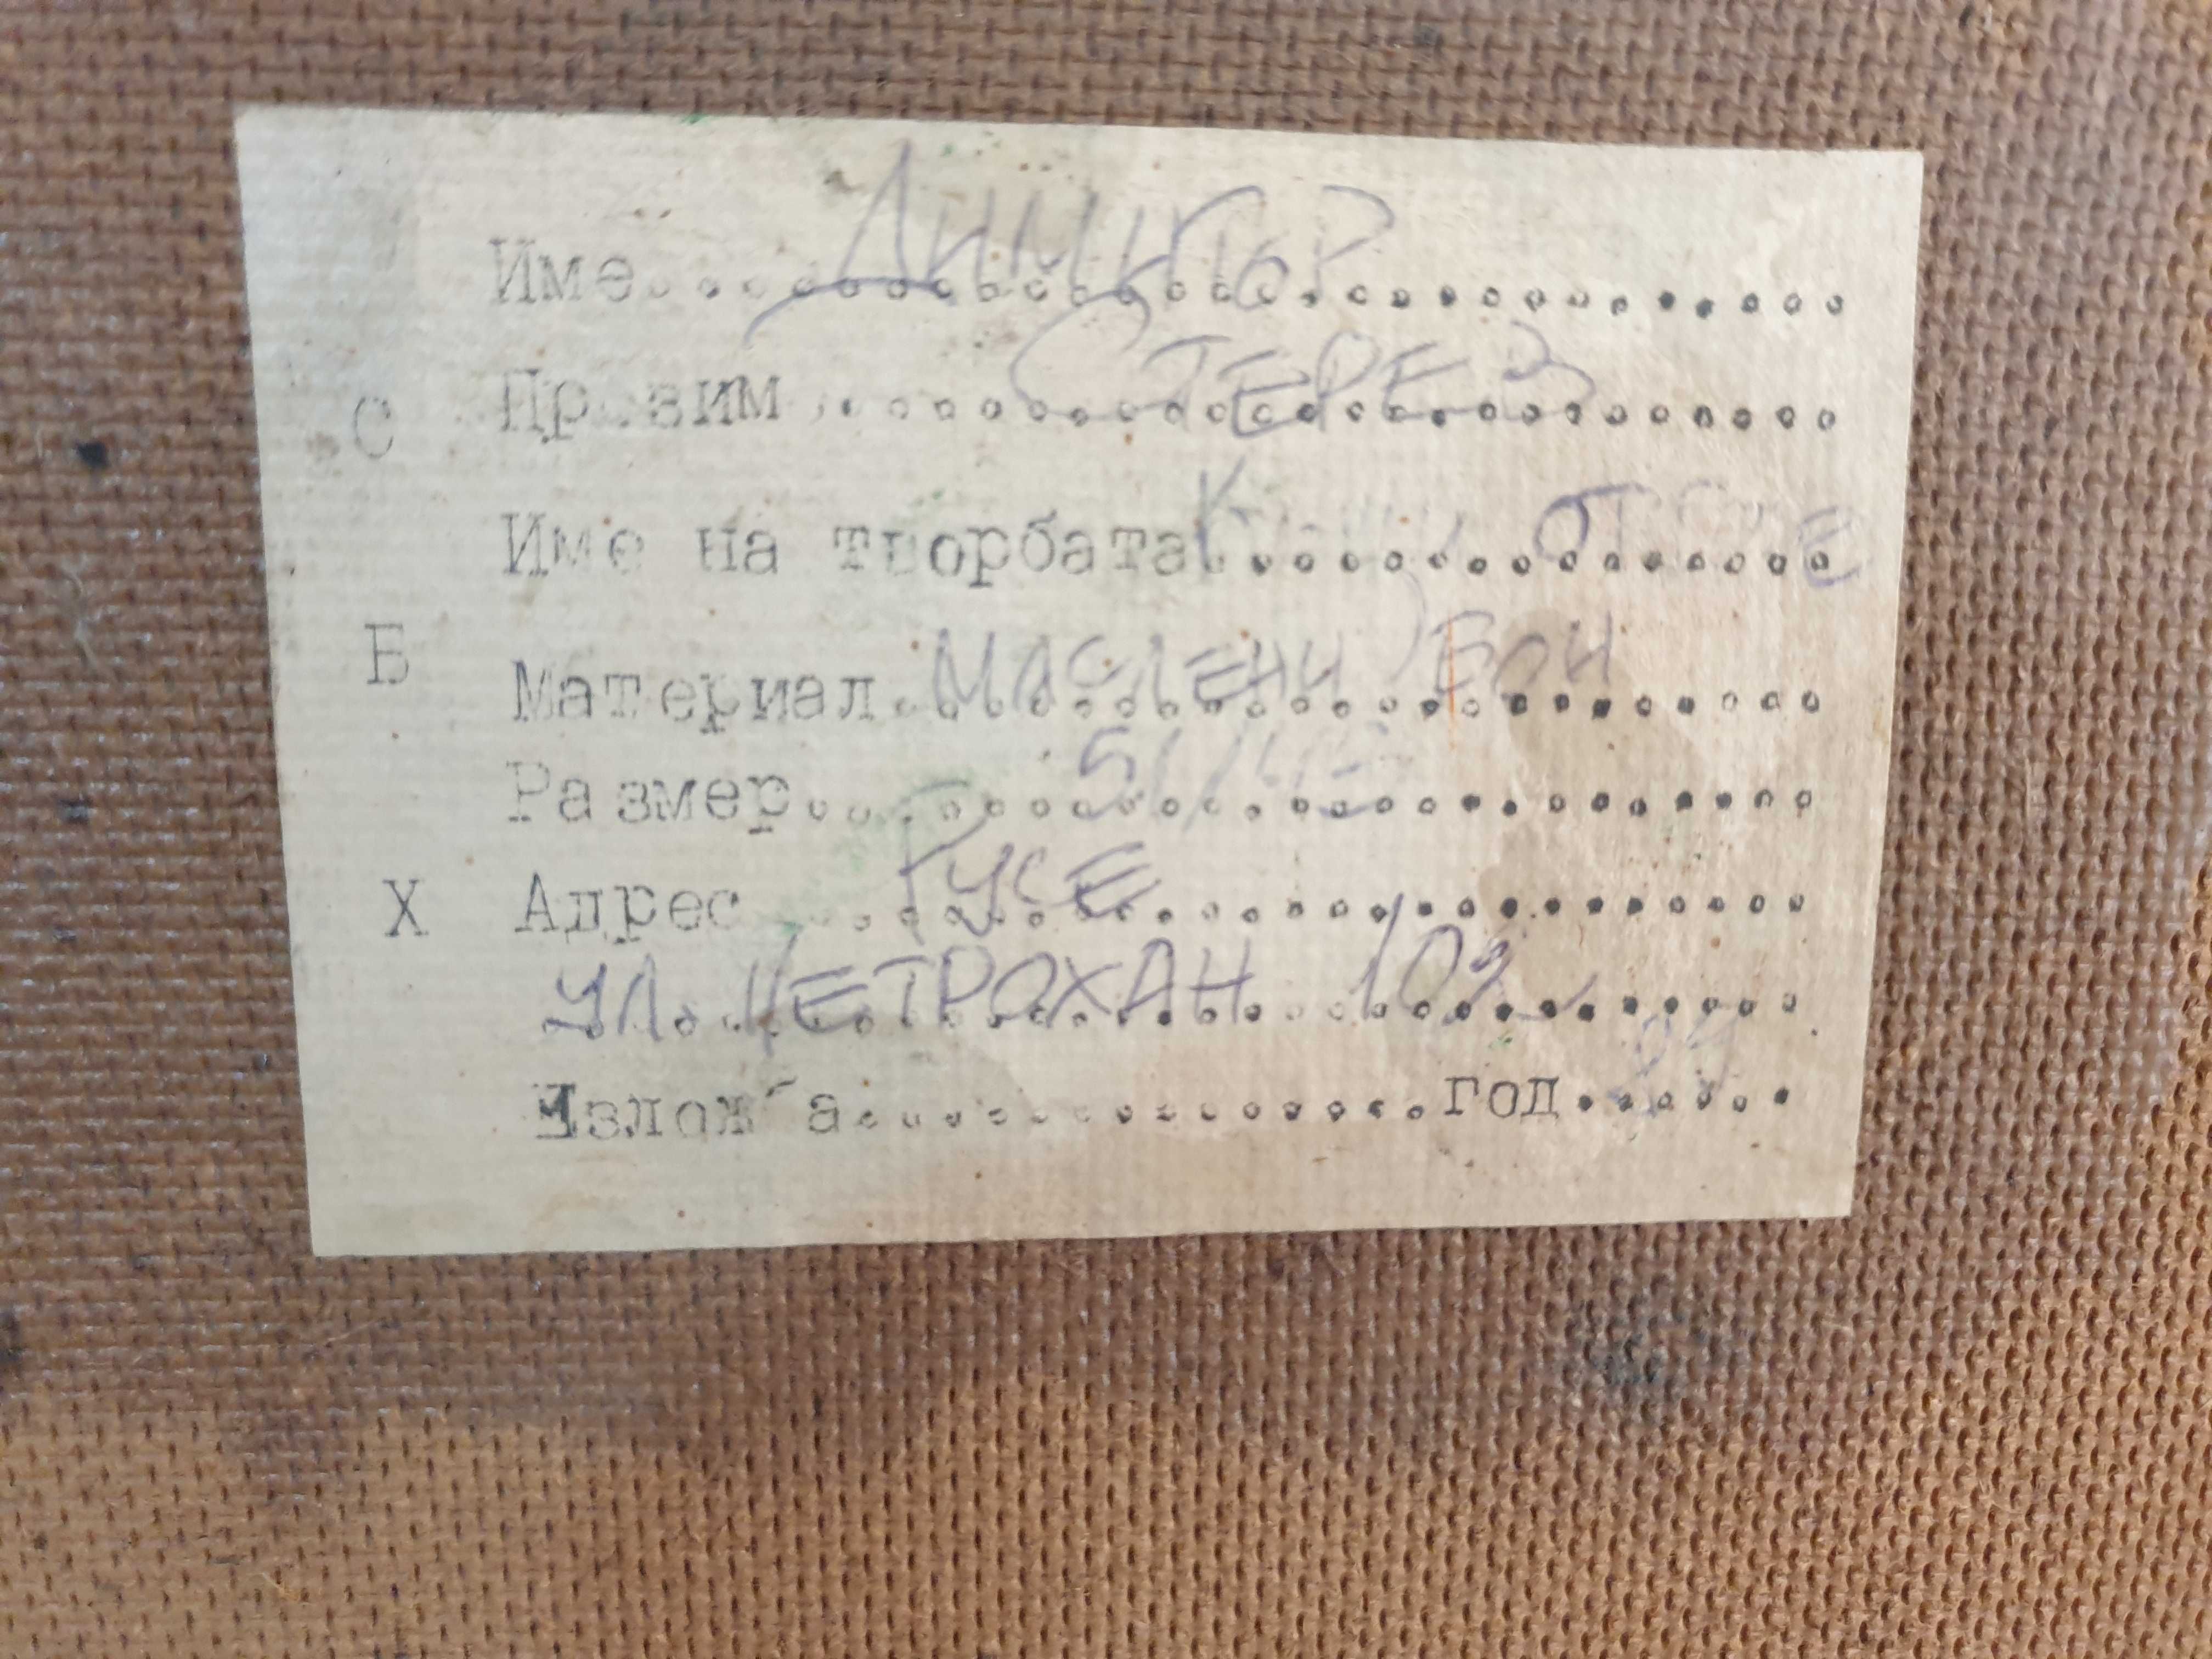 Име...ДИМИТЪР
С Презим...СТЕРЕВ
Име на творбата...ОТ
Б Материал.МАСЛЕНИ БОИ
Размер...51/
Х Адрес...РУСЕ
УЛ. ПЕТРОХАН 102
Изложба...год...